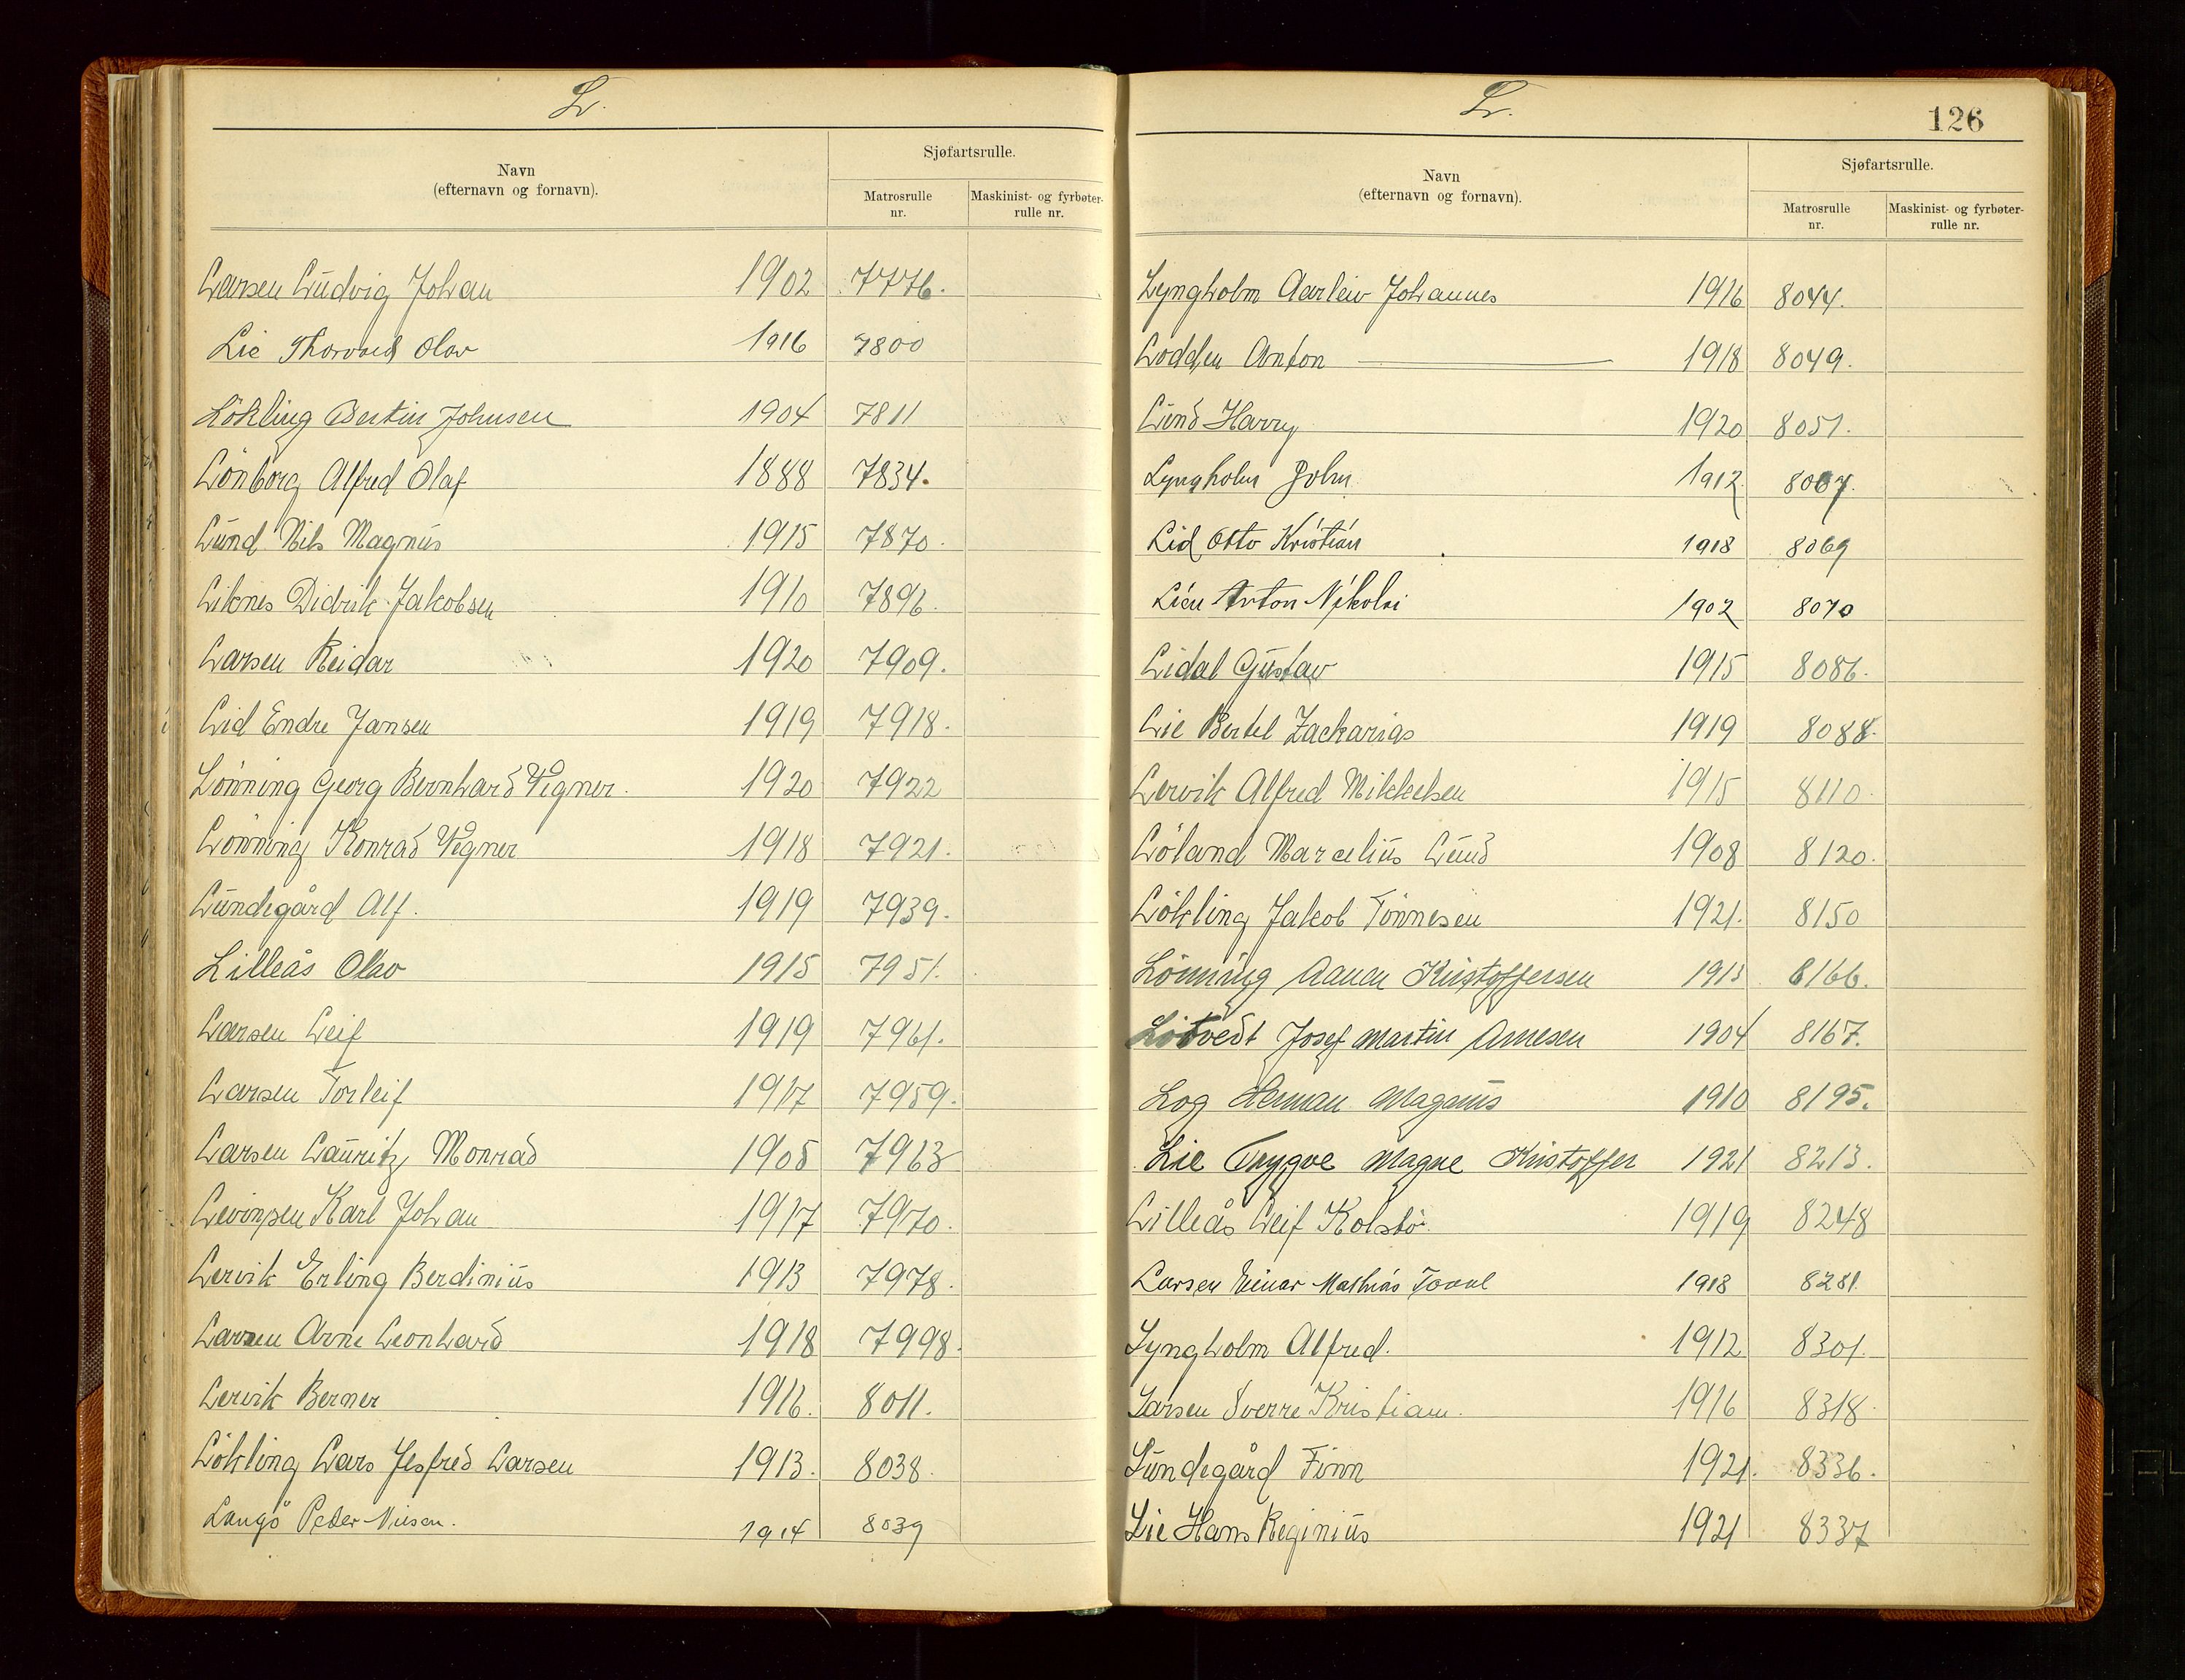 L.
Navn
(efternavn og fornavn).
Sjøfartsrulle.
Matrosrulle nr.
Maskinist- og fyrbøter-rulle nr.
Larsen Ludvig Johan 1902 7776.
Lie Thorvald Olav 1916 7800
Lökling Bertin Johnsen 1904 7811
Lönborg Alfred Olaf 1888 7834.
Lund Nils Magnus 1915 7870.
Liknes Didrik Jakobsen 1910 7896.
Larsen Reidar 1920 7909.
Lid Endre Jansen 1919 7918.
Lönning Georg Bernhard Wegner. 1920 7922
Lönning Konrad Wegner 1918 7921.
Lundegård Alf. 1919 7939.
Lilleås Olav 1915 7951.
Larsen Leif 1919 7961.
Larsen Torleif 1917 7959.
Larsen Lauritz Monrad 1908 7963
Levinsen Karl Johan 1917 7970.
Lervik Erling Berdinius 1913 7978.
Larsen Arne Leonhard 1918 7998.
Lervik Berner 1916. 8011.
Lökling Lars Jesfred Larsen 1913. 8038.
Langö Peder 1914 8039
L.
126
Navn
(efternavn og fornavn).
Sjøfartsrulle.
Matrosrulle nr.
Maskinist- og fyrbøter-rulle nr.
Lyngholm Aarleiv Johannes 1916 8044.
Lodden Anton 1918 8049.
Lund Harry 1920 8051.
Lyngholm John 1912 8067.
Lid Otto Kristian 1918 8069
Lien Anton Nikolai 1902 8070
Lidal Gustav 1915 8086.
Lie Bertel Zackarias 1919 8088.
Lervik Alfred Mikkelsen 1915 8110.
Löland Marcelius Lund 1908 8120.
Lökling Jakob Tönnesen 1921. 8150
Lönning Aanen Kristoffersen 1913 8166.
Josef Martin Arnesen 1904 8167.
Log Herman Magnus 1910 8195.
Lie Trygve Magne Kristoffer 1921 8213.
Lilleås Leif Kolstö. 1919 8248
Larsen Einar Mathias 1918 8281.
Lyngholm Alfred. 1912 8301.
Larsen Sverre Kristian. 1916 8318.
Lundegård Finn 1921. 8336.
Lie Hans Reginius 1921 8337